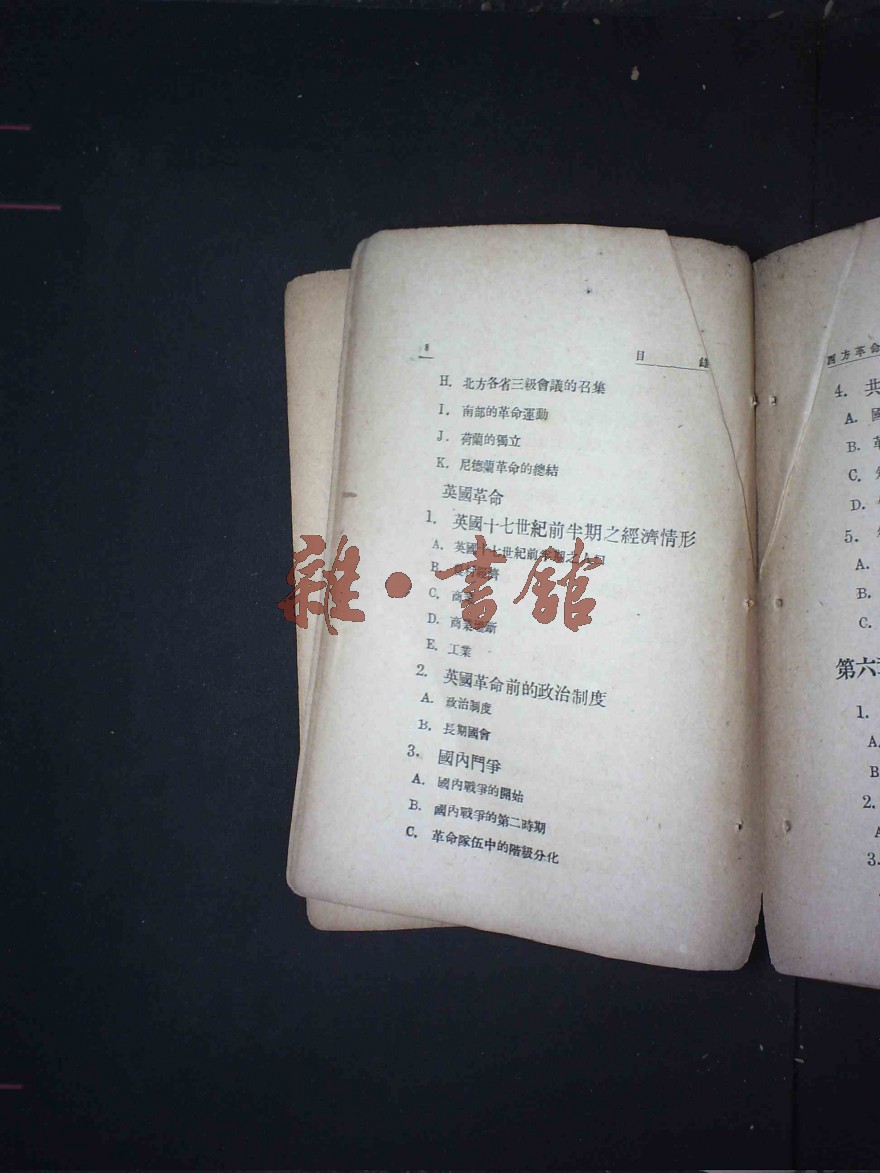 8
目 錄
H. 北方各省三級會議的召集
I. 南部的革命運動
J. 荷蘭的獨立
K. 尼德蘭革命的總結
英國革命
1. 英國十七世紀前半期之經濟情形
A. 英國十七世紀前半期之人口
B. 經濟
C. 商業
D. 商業壟斷
E. 工業
2. 英國革命前的政治制度
A. 政治制度
B. 長期國會
3. 國內鬥爭
A. 國內戰爭的開始
B. 國內戰爭的第二時期
C. 革命隊伍中的階級分化
雜·書館
西方革命
4. 共
A. 國
B. 革
C.
D.
5.
A.
B.
C.
第六章
1.
A.
B
2.
A
3.